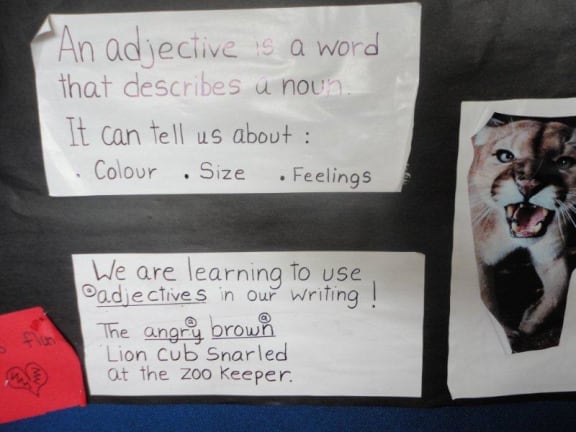 An adjective is a word
that describes a noun.
It can tell us about :
. Colour . Size . Feelings
We are learning to use
ⓐadjectives in our writing !
The angry ⓐ brown ⓐ
Lion Cub Snarled
at the zoo keeper.